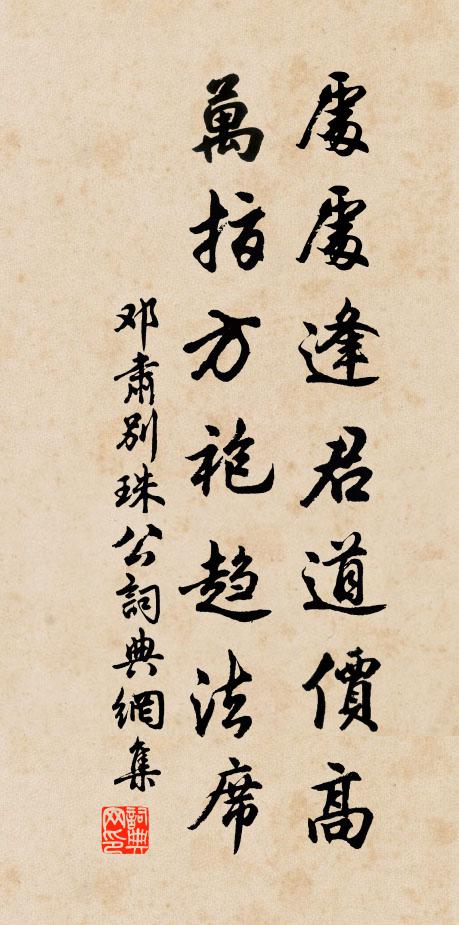 處處逢君道價高
萬指方袍趋法席
邓肅别珠公詞典網集
詞典網印